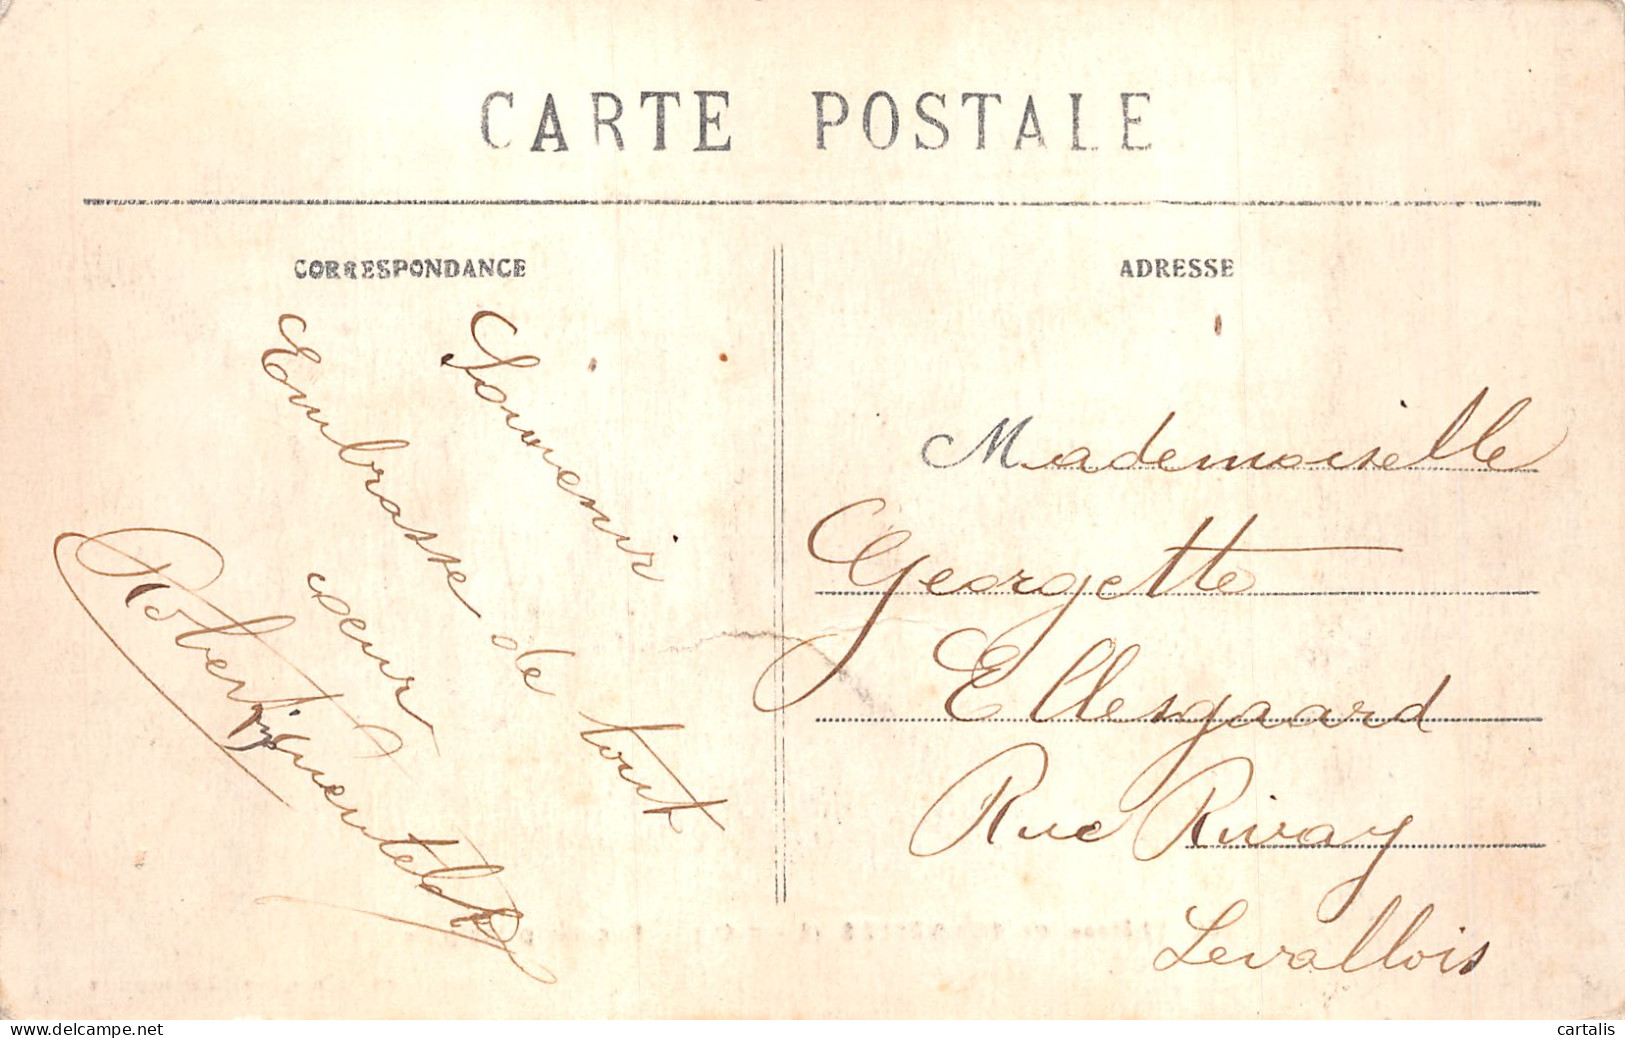 CARTE POSTALE
CORRESPONDANCE
Souvenir
Embrasse de tout
coeur
Robert
ADRESSE
Mademoiselle
Georgette
Ellesgaard
Rue Rivay
Levallois
delcampe.net
cartalis